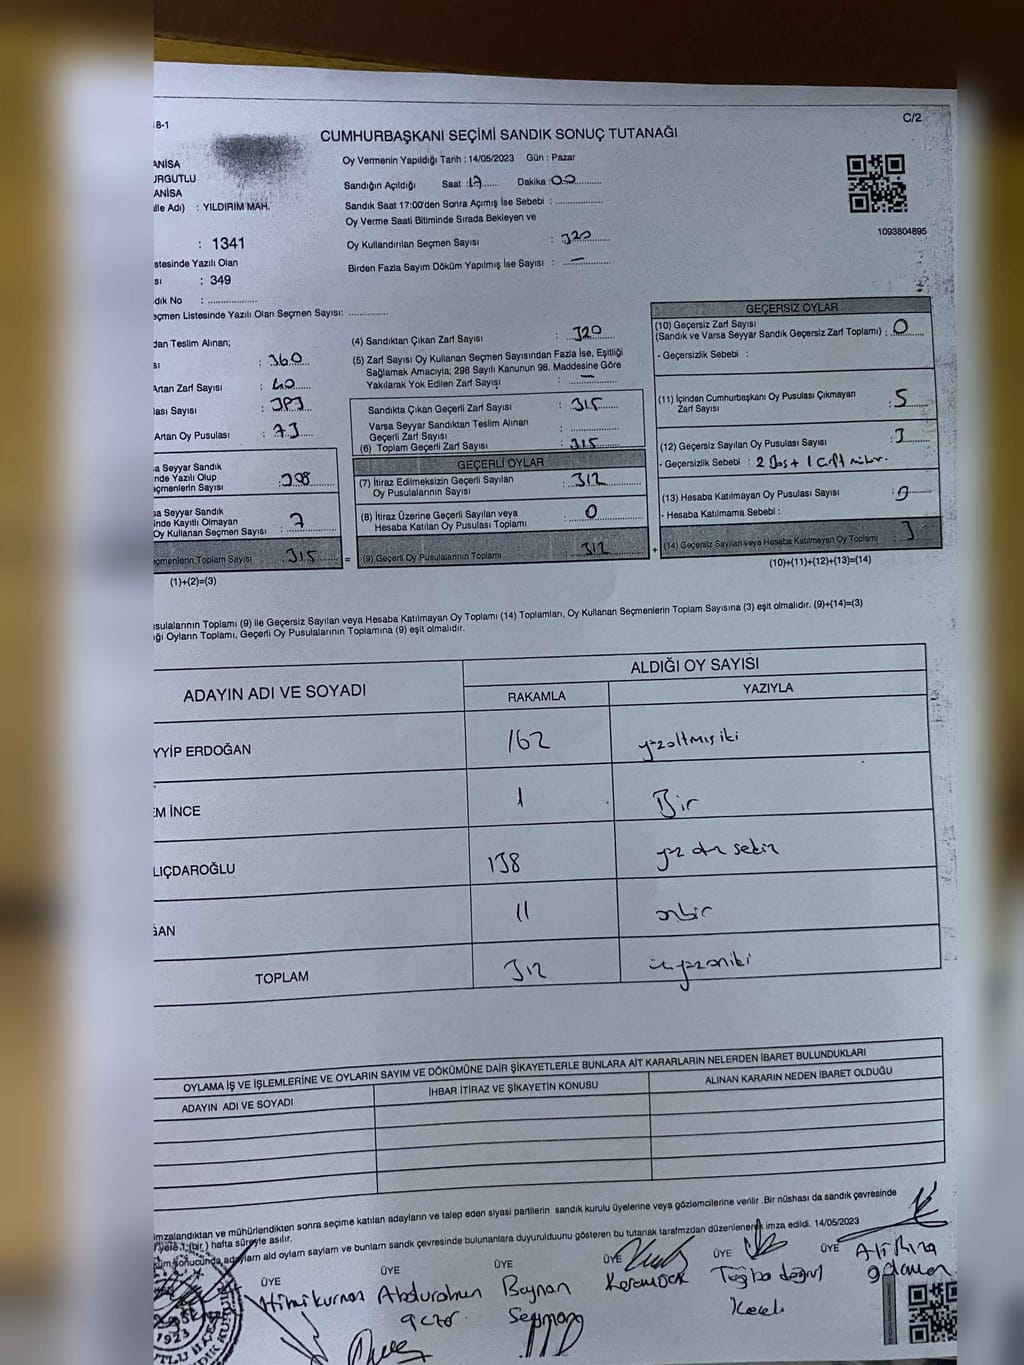 8-1
C/2
CUMHURBAŞKANI SEÇİMİ SANDIK SONUÇ TUTANAĞI
ANİSA
URGUTLU
ANİSA
lle Adı) : YILDIRIM MAH.
: 1341
stesinde Yazılı Olan
sı : 349
dık No : ....................
eçmen Listesinde Yazılı Olan Seçmen Sayısı: ................
Oy Vermenin Yapıldığı Tarih : 14/05/2023 Gün : Pazar
Sandığın Açıldığı Saat : 17 Dakika : 00
Sandık Saat 17:00'den Sonra Açımış İse Sebebi : ...................
Oy Verme Saati Bitiminde Sırada Bekleyen ve
Oy Kullandırılan Seçmen Sayısı : 320
Birden Fazla Sayım Döküm Yapılmış İse Sayısı : —
1093804895
dan Teslim Alınan;
sı : 360
Artan Zarf Sayısı : 40
lası Sayısı : 393
Artan Oy Pusulası : 73
a Seyyar Sandık
nde Yazılı Olup
eçmenlerin Sayısı
sa Seyyar Sandık
inde Kayıtlı Olmayan
Oy Kullanan Seçmen Sayısı : 7
eçmenlerin Toplam Sayısı : 315
(1)+(2)=(3)
(4) Sandıktan Çıkan Zarf Sayısı : 320
(5) Zarf Sayısı Oy Kullanan Seçmen Sayısından Fazla İse, Eşitliği
Sağlamak Amacıyla; 298 Sayılı Kanunun 98. Maddesine Göre
Yakılarak Yok Edilen Zarf Sayışı : —
Sandıkta Çıkan Geçerli Zarf Sayısı : 315
Varsa Seyyar Sandıktan Teslim Alınan
Geçerli Zarf Sayısı : ....................
(6) Toplam Geçerli Zarf Sayısı : 315
GEÇERLİ OYLAR
(7) İtiraz Edilmeksizin Geçerli Sayılan
Oy Pusulalarının Sayısı : 312
(8) İtiraz Üzerine Geçerli Sayılan veya
Hesaba Katılan Oy Pusulası Toplamı : 0
= (9) Geçerli Oy Pusulalarının Toplamı : 312 +
GEÇERSİZ OYLAR
(10) Geçersiz Zarf Sayısı
(Sandık ve Varsa Seyyar Sandık Geçersiz Zarf Toplamı) : 0
- Geçersizlik Sebebi :
(11) İçinden Cumhurbaşkanı Oy Pusulası Çıkmayan
Zarf Sayısı : 5
(12) Geçersiz Sayılan Oy Pusulası Sayısı : 3
- Geçersizlik Sebebi : 2 Boş + 1 Çift mühür.
(13) Hesaba Katılmayan Oy Pusulası Sayısı : 0
- Hesaba Katılmama Sebebi :
(14) Geçersiz Sayılan veya Hesaba Katılmayan Oy Toplamı : 3
(10)+(11)+(12)+(13)=(14)
usulalarının Toplamı (9) ile Geçersiz Sayılan veya Hesaba Katılmayan Oy Toplamı (14) Toplamları, Oy Kullanan Seçmenlerin Toplam Sayısına (3) eşit olmalıdır. (9)+(14)=(3)
ığı Oyların Toplamı, Geçerli Oy Pusulalarının Toplamına (9) eşit olmalıdır.
ADAYIN ADI VE SOYADI
ALDIĞI OY SAYISI
RAKAMLA YAZIYLA
YYİP ERDOĞAN 162 yüzaltmış iki
EM İNCE 1 Bir
LIÇDAROĞLU 138 yüz otuz sekiz
ĞAN 11 onbir
TOPLAM 312 üçyüzoniki
OYLAMA İŞ VE İŞLEMLERİNE VE OYLARIN SAYIM VE DÖKÜMÜNE DAİR ŞİKAYETLERLE BUNLARA AİT KARARLARIN NELERDEN İBARET BULUNDUKLARI
ADAYIN ADI VE SOYADI
İHBAR İTİRAZ VE ŞİKAYETİN KONUSU
ALINAN KARARIN NEDEN İBARET OLDUĞU
imzalandıktan ve mühürlendikten sonra seçime katılan adayların ve talep eden siyasi partilerin sandık kurulu üyelerine veya gözlemcilerine verilir .Bir nüshası da sandık çevresinde
1 (bir) hafta süreyle asılır.
adayların ald oyların sayların ve bunların sandk çevresinde bulunanlara duyurulduunu gösteren bu tutanak tarafmzdan düzenlenerek imza edildi. 14/05/2023
ÜYE ÜYE ÜYE ÜYE ÜYE ÜYE
Abdurahman
Beynan
Kerem
Tuğba doğrul
Ali Rıza
1923